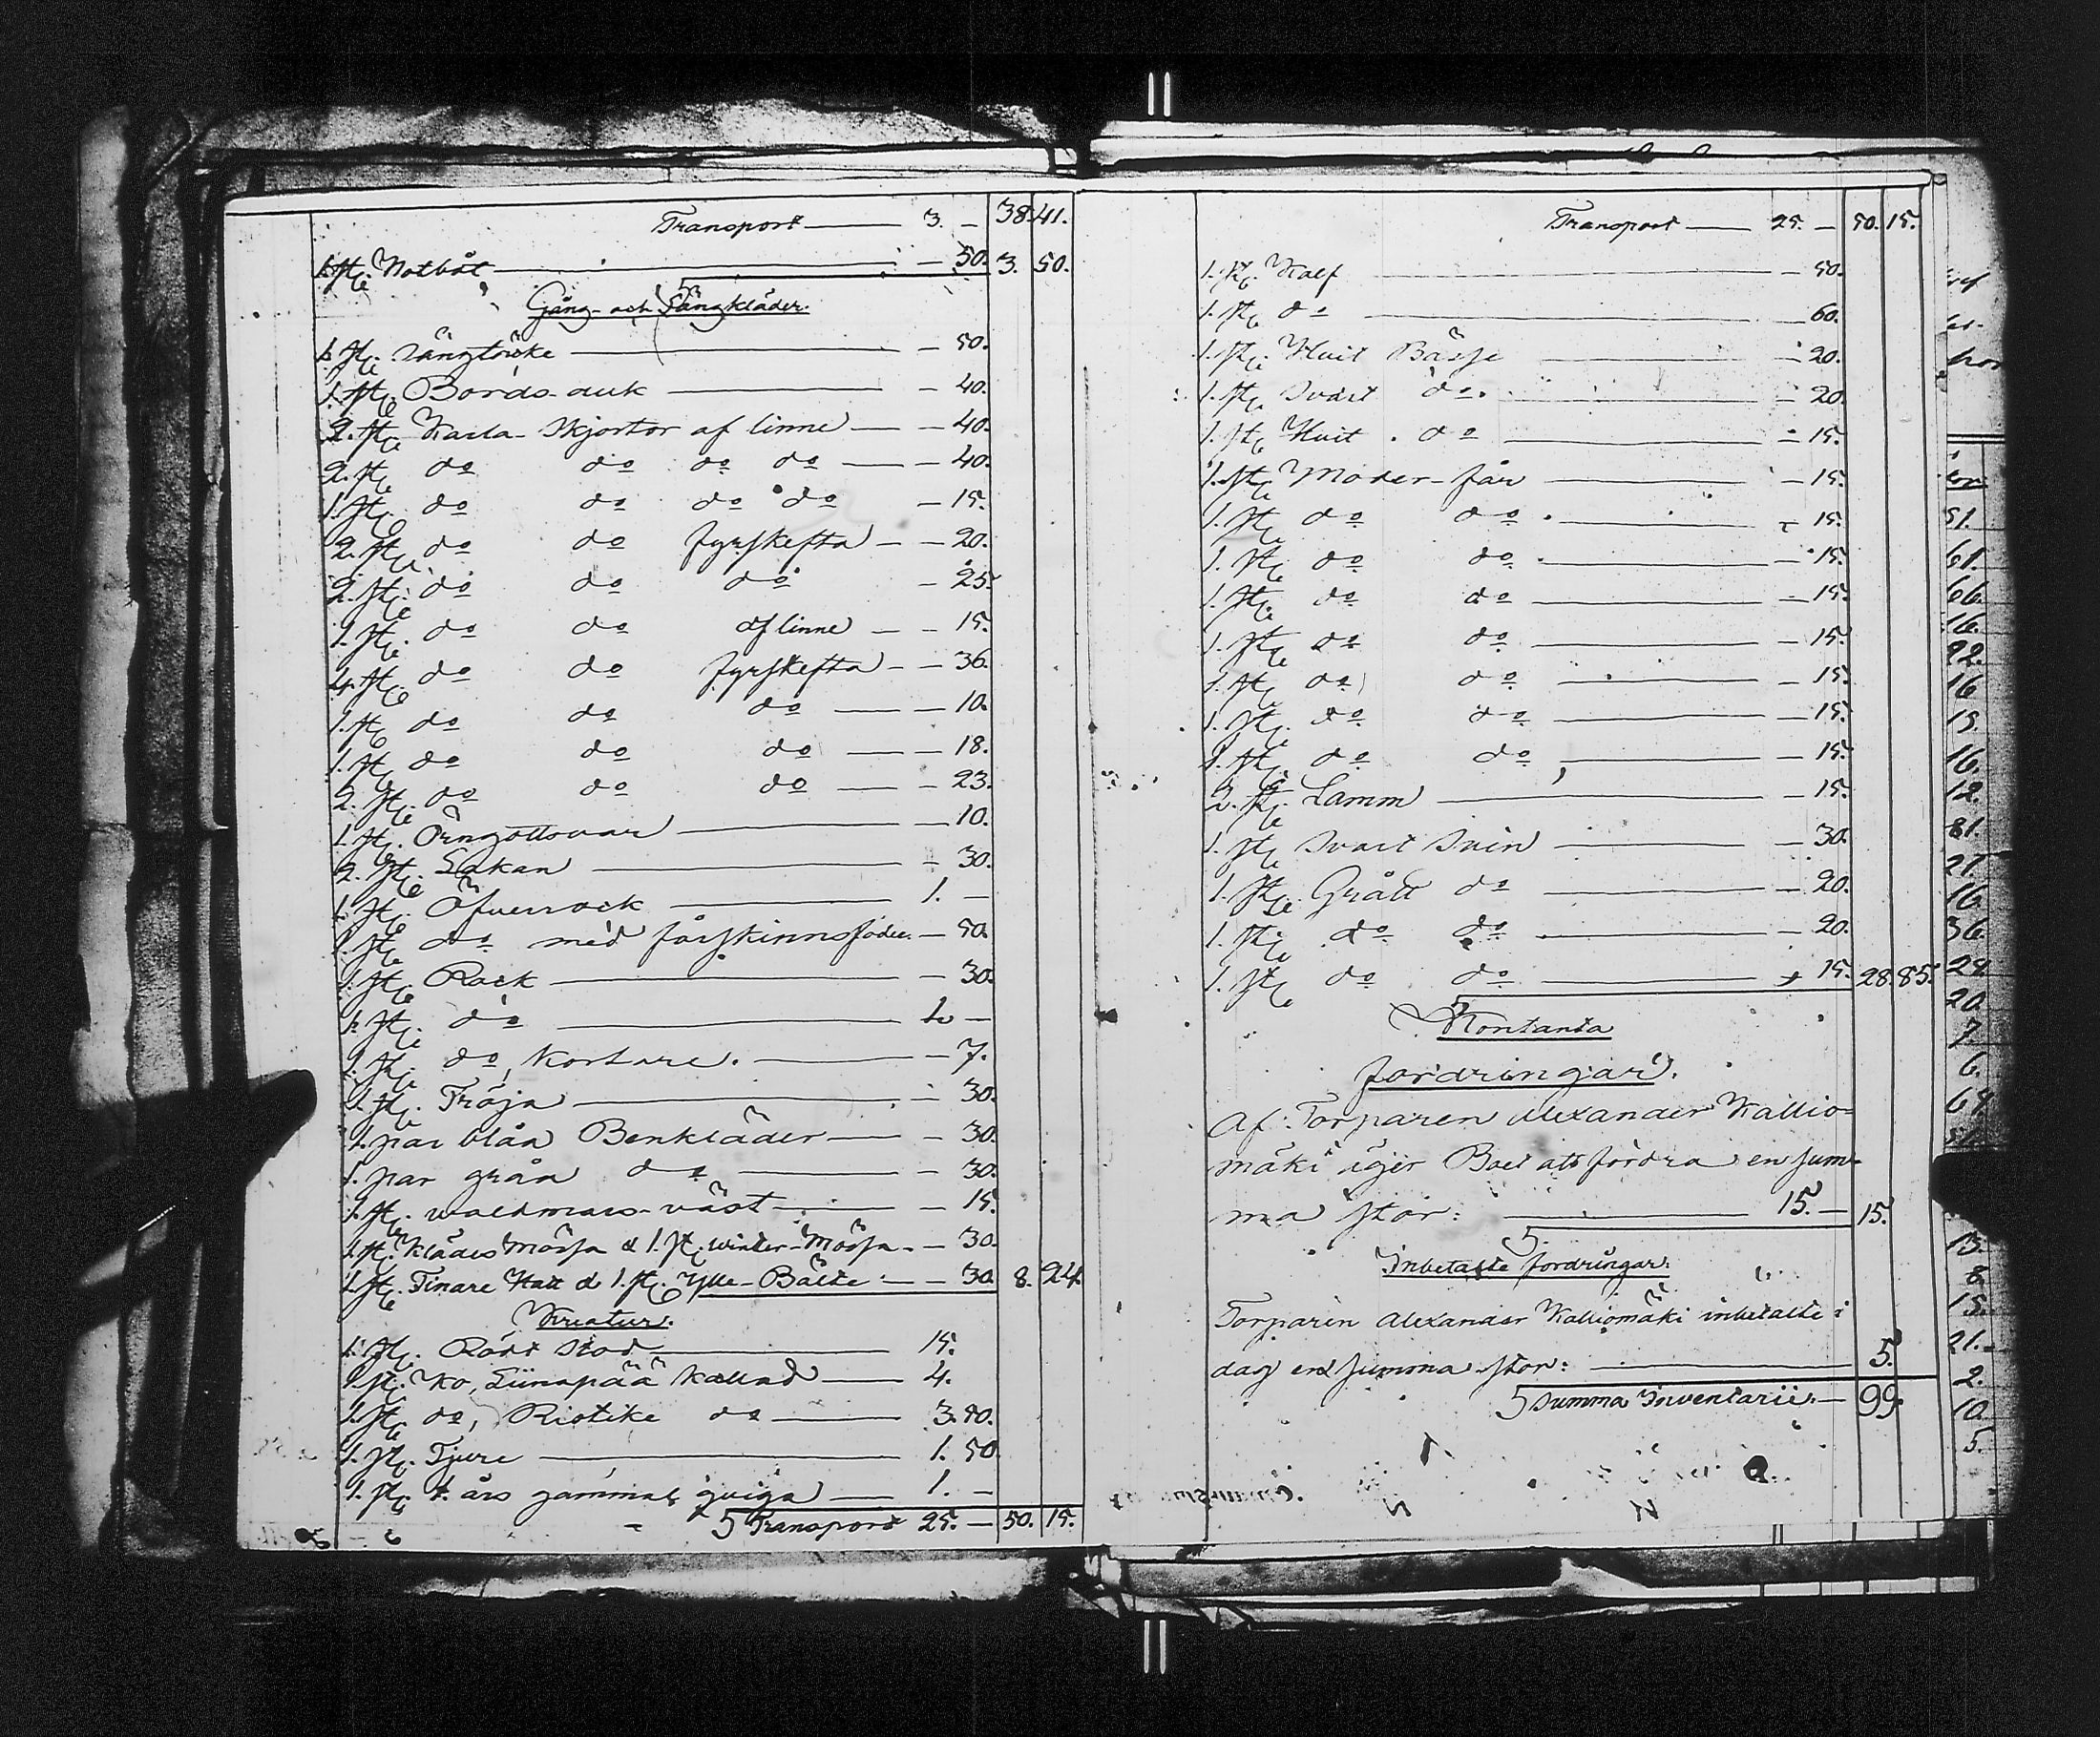 Transport — 3. — 38. 41.
1. st. Notbåt — 50. 3. 50.
Gång- och Sängkläder.
1. st. Sängtäcke — 50.
1. st. Bords-duk — 40.
2. st. Karla-Skjortor af linne — 40.
2. st. do do do do — 40.
1. st. do do do do — 15.
2. st. do do fyrskefta — 20.
2. st. do do do — 25.
1. st. do do af linne — 15.
4. st. do do fyrskefta — 36.
1. st. do do do — 10.
1. st. do do do — 18.
2. st. do do do — 23.
1. st. Örngottsvar — 10.
2. st. Lakan — 30.
1. st. Öfverrock — 1. —
1. st. do med fårskinnsfoder — 50.
1. st. Rock — 30.
1. st. do — 1. —
1. st. do, kortare. — 7.
1. st. Tröja — 30.
1. par blåa Benkläder — 30.
1. par gråa do — 30.
1. st. waldmars-väst — 15.
1. st. Klädes Mössa & 1. st. winter-Mössa — 30.
1. st. Finare Hatt & 1. st. Ylle-Bälte — 30. 8. 24.
Kreatur.
1. st. Rödt Stod — 15.
1. st. Ko, Liinapää kallad — 4.
1. st. do, Ristike do — 3. 50.
1. st. Tjure — 1. 50.
1. st. 1. års gammal qviga — 1. —
Transport 25. — 50. 15.
Transport — 25. — 50. 15.
1. st. Kalf — 50.
1. st. do — 60.
1. st. Hvit Basse — 20.
1. st. Svart do. — 20.
1. st. Hvit do — 15.
1. st. Moder-får — 15.
1. st. do do — 15.
1. st. do do — 15.
1. st. do do — 15.
1. st. do do — 15.
1. st. do do — 15.
1. st. do do — 15.
1. st. do do — 15.
2. st. Lamm — 15.
1. st. Svart Svin — 30.
1. st. Grått do — 20.
1. st. do do — 20.
1. st. do do — 15. 28. 85.
Kontanta
fordringar.
Af Torparen Alexander Kallio-
mäki äger Boet att fordra en sum-
ma stor: — 15. — 15.
Inbetalte fordringar.
Torparen Alexander Kalliomäki inbetalte i
dag en summa stor: — 5.
Summa Inventarii. — 99.